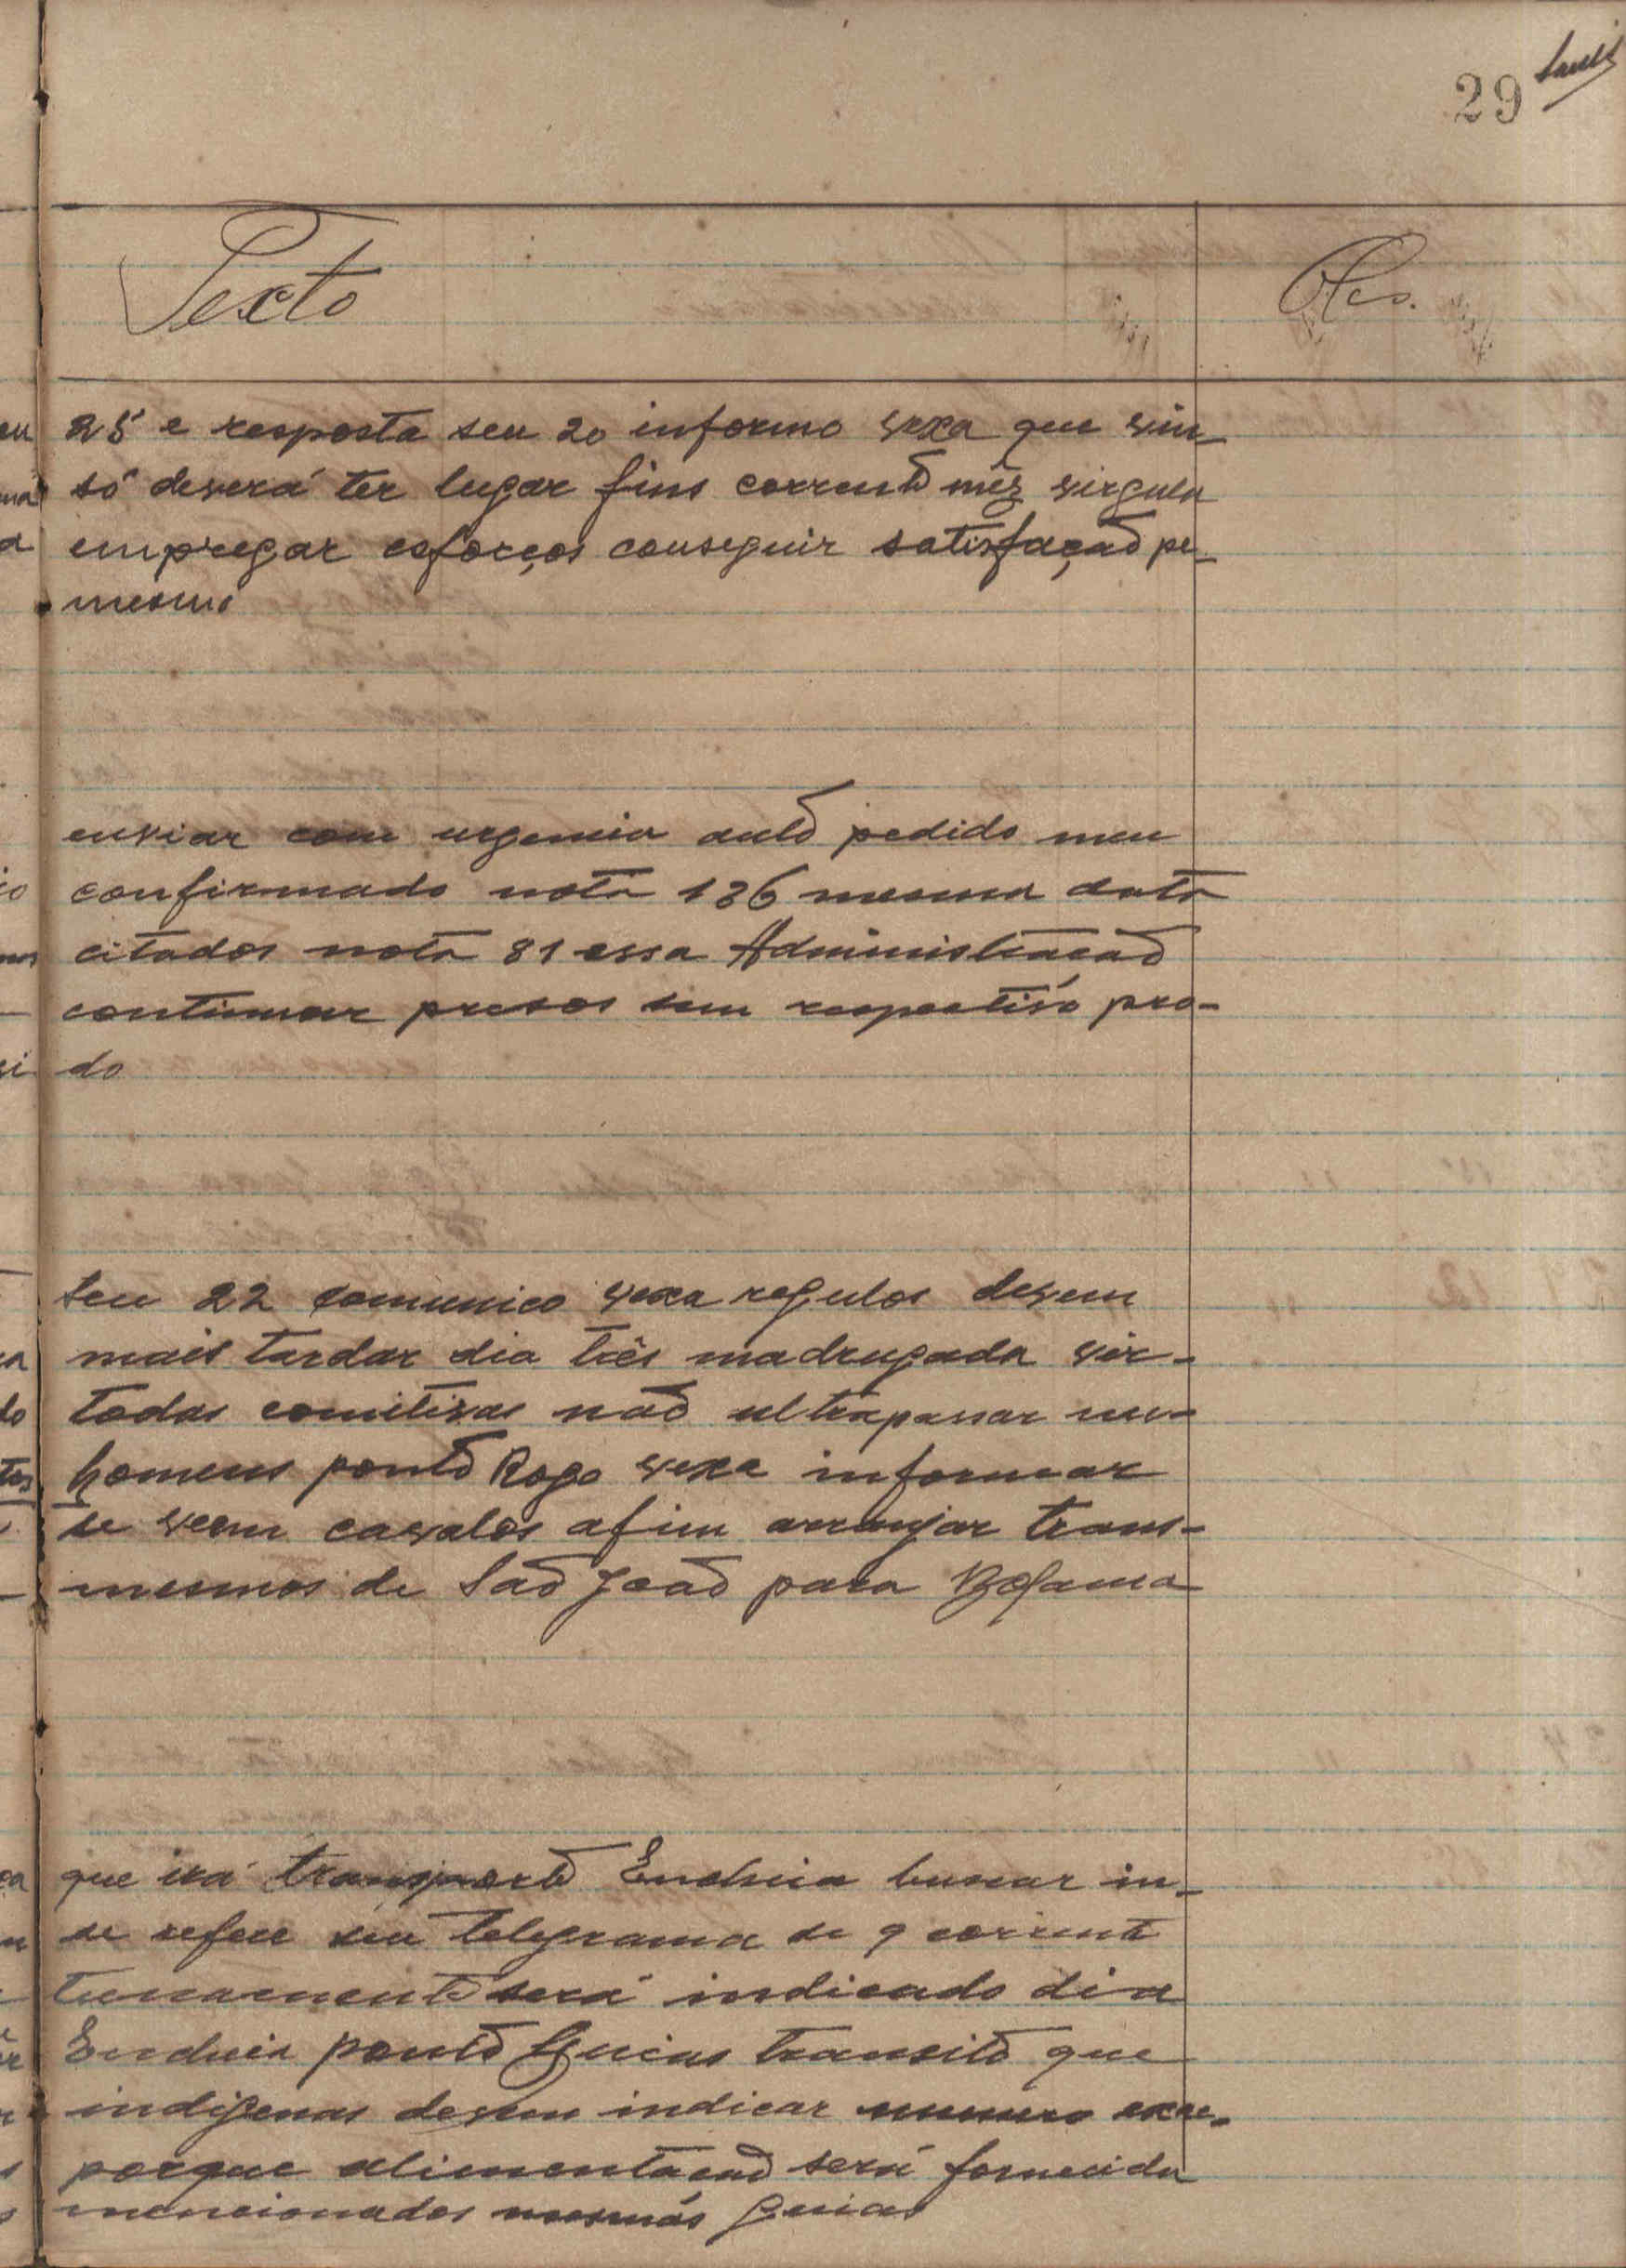 29
Texto
Obs.
25 e resposta seu 20 informo vexa que vin-
só deverá ter lugar fins corrente mêz virgula
empregar esforços conseguir satisfação pe-
mesmo
enviar com urgencia auto pedido meu
confirmado nota 136 mesma data
citados nota 81 essa Administração
continuar presos sem respectivo pro-
do
seu 22 comunico vexa regulos devem
mais tardar dia três madrugada vir-
todas comitivas não ultrapassar nu-
homens ponto Rogo vexa informar
se veem cavalos afim arranjar trans-
mesmos de São João para Bolama
que irá transporte Encheia buscar in-
se refere seu telegrama de 9 corrente
será indicado dia
ponto Guias transito que
indigenas devem indicar numero exa-
porque alimentação será fornecida
mencionados mesmas Guias